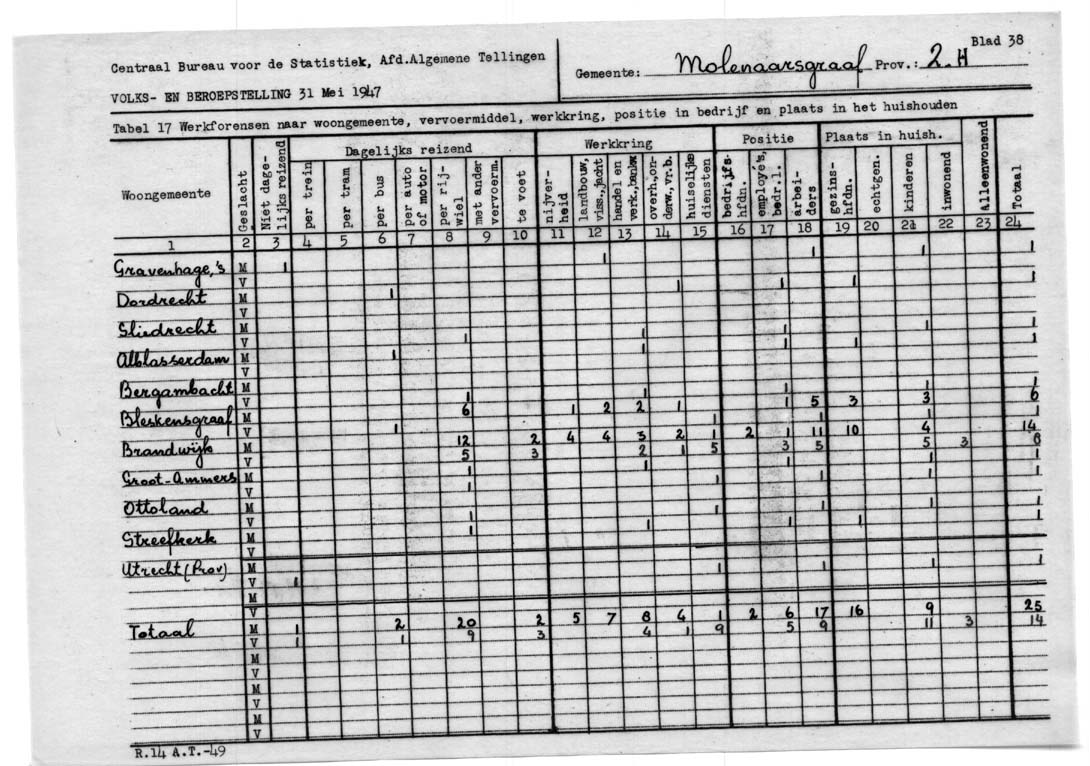 Centraal Bureau voor de Statistiek, Afd.Algemene Tellingen
VOLKS- EN BEROEPSTELLING 31 Mei 1947
Blad 38
Gemeente: Molenaarsgraaf Prov.: Z.H
Tabel 17 Werkforensen naar woongemeente, vervoermiddel, werkkring, positie in bedrijf en plaats in het huishouden
Woongemeente
Geslacht
Niet dage-
lijks reizend
Dagelijks reizend
per trein
per tram
per bus
per auto
of motor
per rij-
wiel
met ander
vervoerm.
te voet
Werkkring
nijver-
heid
landbouw,
viss.,jacht
handel en
verk.,bankw
overh.,on-
derw.,vr.b.
huiselijke
diensten
Positie
bedrijfs-
hfdn.
employé's,
bedr.l.
arbei-
ders
Plaats in huish.
gezins-
hfdn.
echtgen.
kinderen
inwonend
Alleenwonend
Totaal
1 2 3 4 5 6 7 8 9 10 11 12 13 14 15 16 17 18 19 20 21 22 23 24
Gravenhage,'s M 1 1 1 1 1
V
Dordrecht M 1 1 1 1 1
V
Sliedrecht M
V 1 1 1 1 1
Alblasserdam M 1 1 1 1 1
V
Bergambacht M
V 1 1 1 1 1
Bleskensgraaf M 6 1 2 2 1 1 5 3 3 6
V 1 1 1 1 1
Brandwijk M 12 2 4 4 3 2 1 2 1 11 10 4 14
V 5 3 2 1 5 3 5 5 3 8
Groot-Ammers M 1 1 1 1 1
V 1 1 1 1 1
Ottoland M
V 1 1 1 1 1
Streefkerk M 1 1 1 1 1
V
Utrecht (Prov) M
V 1 1 1 1 1
M
V
Totaal M 1 2 20 2 5 7 8 4 1 2 6 17 16 9 25
V 1 1 9 3 4 1 9 5 9 11 3 14
M
V
M
V
M
V
R.14 A.T.-49